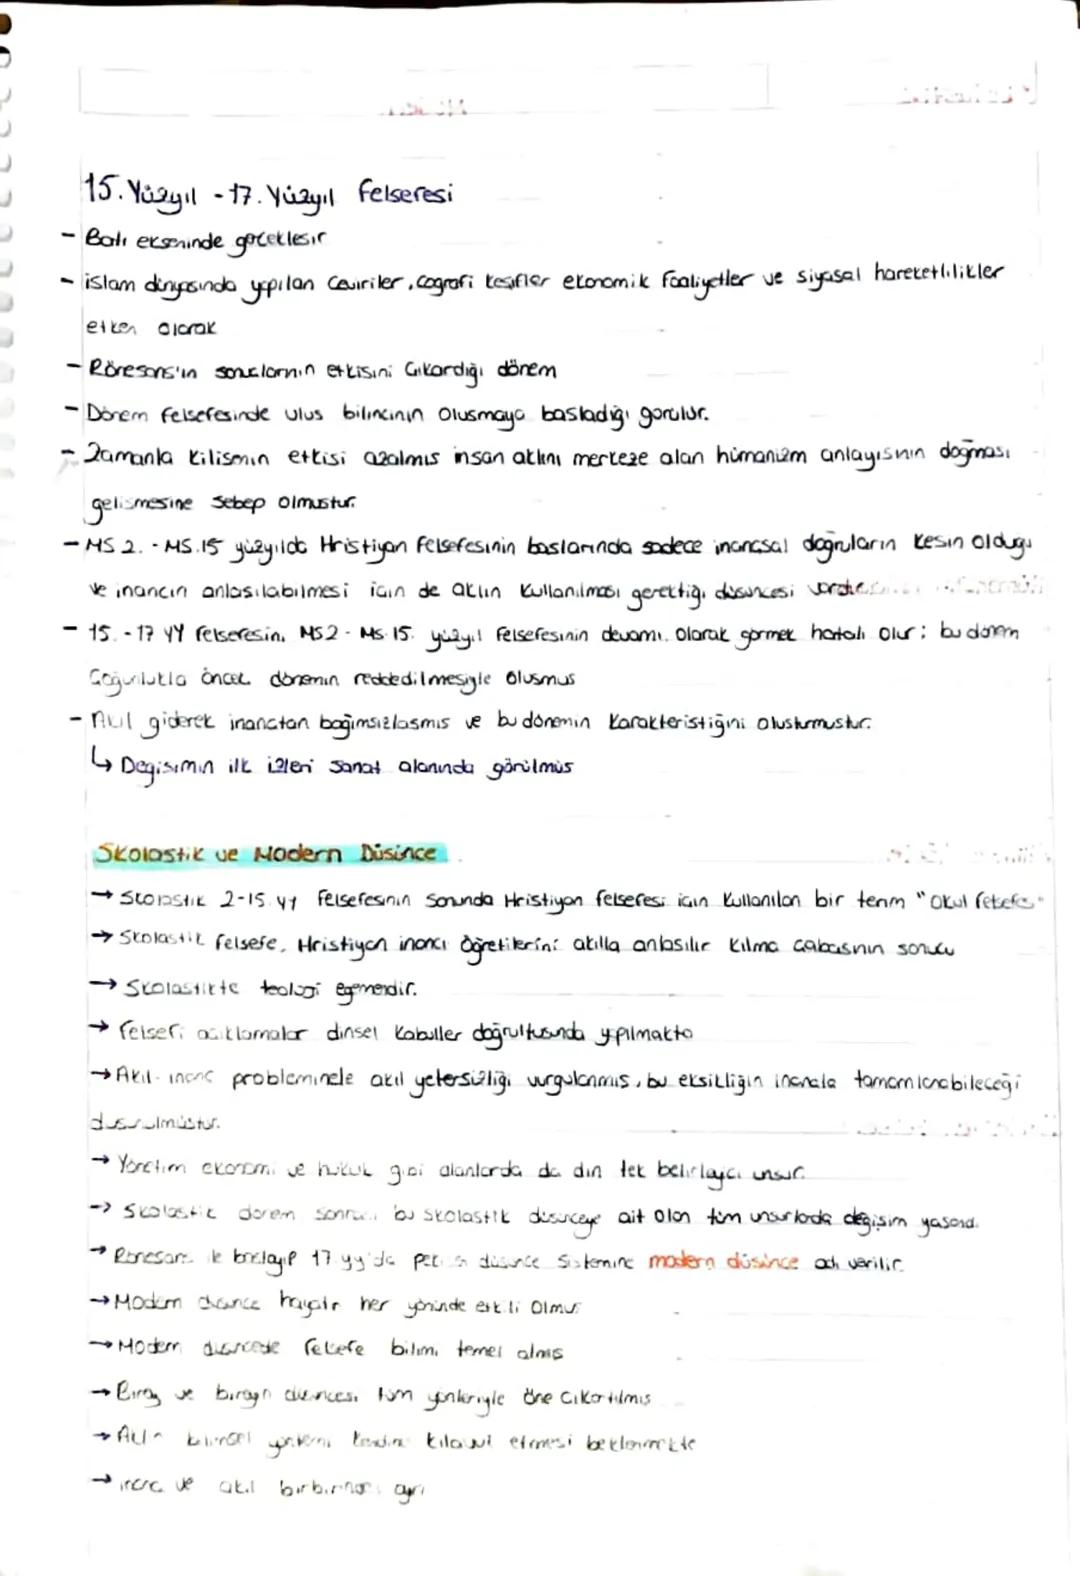 15. Yüzyıl - 17. Yüzyıl Felsefesi
- Batı ekseninde geçekleşir
- islam dünyasında yapılan Çeviriler, coğrafi keşifler ekonomik faaliyetler ve siyasal hareketlilikler
etken olarak
- Rönesans'ın sonuçlarının etkisini Çıkardığı dönem
- Dönem felsefesinde ulus bilincinin Oluşmaya başladığı görülür.
- Zamanla kilisenin etkisi azalmıs insan aklını merkeze alan hümanizm anlayısının doğması
gelismesine sebep olmustur.
- MS 2. - MS.15 yüzyılda Hristiyan Felsefesinin baslarında sadece inançsal doğruların kesin olduğu
ve inancın anlasılabilmesi için de aklın kullanılması gerektiği düsüncesi vardır
- 15. - 17 YY felsefesini MS2 - MS. 15. yüzyıl Felsefesinin devamı olarak görmek hatalı olur; bu dönem
Çoğunlukla önceki dönemin reddedilmesiyle olusmus
- Akıl giderek inançtan bağımsızlasmıs ve bu dönemin karakteristiğini olusturmustur.
↳ Degisimin ilk izleri sanat alanında görülmüs
Skolastik ve Modern Düsünce
→ Skolastik 2-15. yy felsefesinin sonunda Hristiyan felsefesi için kullanılan bir terim "Okul felsefesi"
→ Skolastik felsefe, Hristiyan inancı öğretilerini akılla anlasılır kılma çabasının sonucu
→ Skolastikte teoloji egemendir.
→ Felsefi açıklamalar dinsel kabuller doğrultusunda yapılmakta
→ Akıl - inanç probleminde akıl yetersizliği vurgulanmıs, bu eksikliğin inançla tamamlanabileceği
düsünülmüstür.
→ Yönetim ekonomi ve hukuk gibi alanlarda da din tek belirleyici unsur.
→ Skolastik dönem sonrası bu skolastik düsünceye ait olan tüm unsurlarda değişim yasandı.
→ Rönesans ile baslayıp 17 yy'da düsünce sistemine modern düsünce adı verilir.
→ Modern düsünce hayatın her yönünde etkili olmus
→ Modern düsüncede felsefe bilimi temel almıs
→ Birey ve bireyin düsüncesi tüm yönleriyle öne çıkartılmıs
→ Aklın bilimsel yöntemi kendine kılavuz etmesi beklenmekte
→ inanç ve akıl birbirinden ayrı